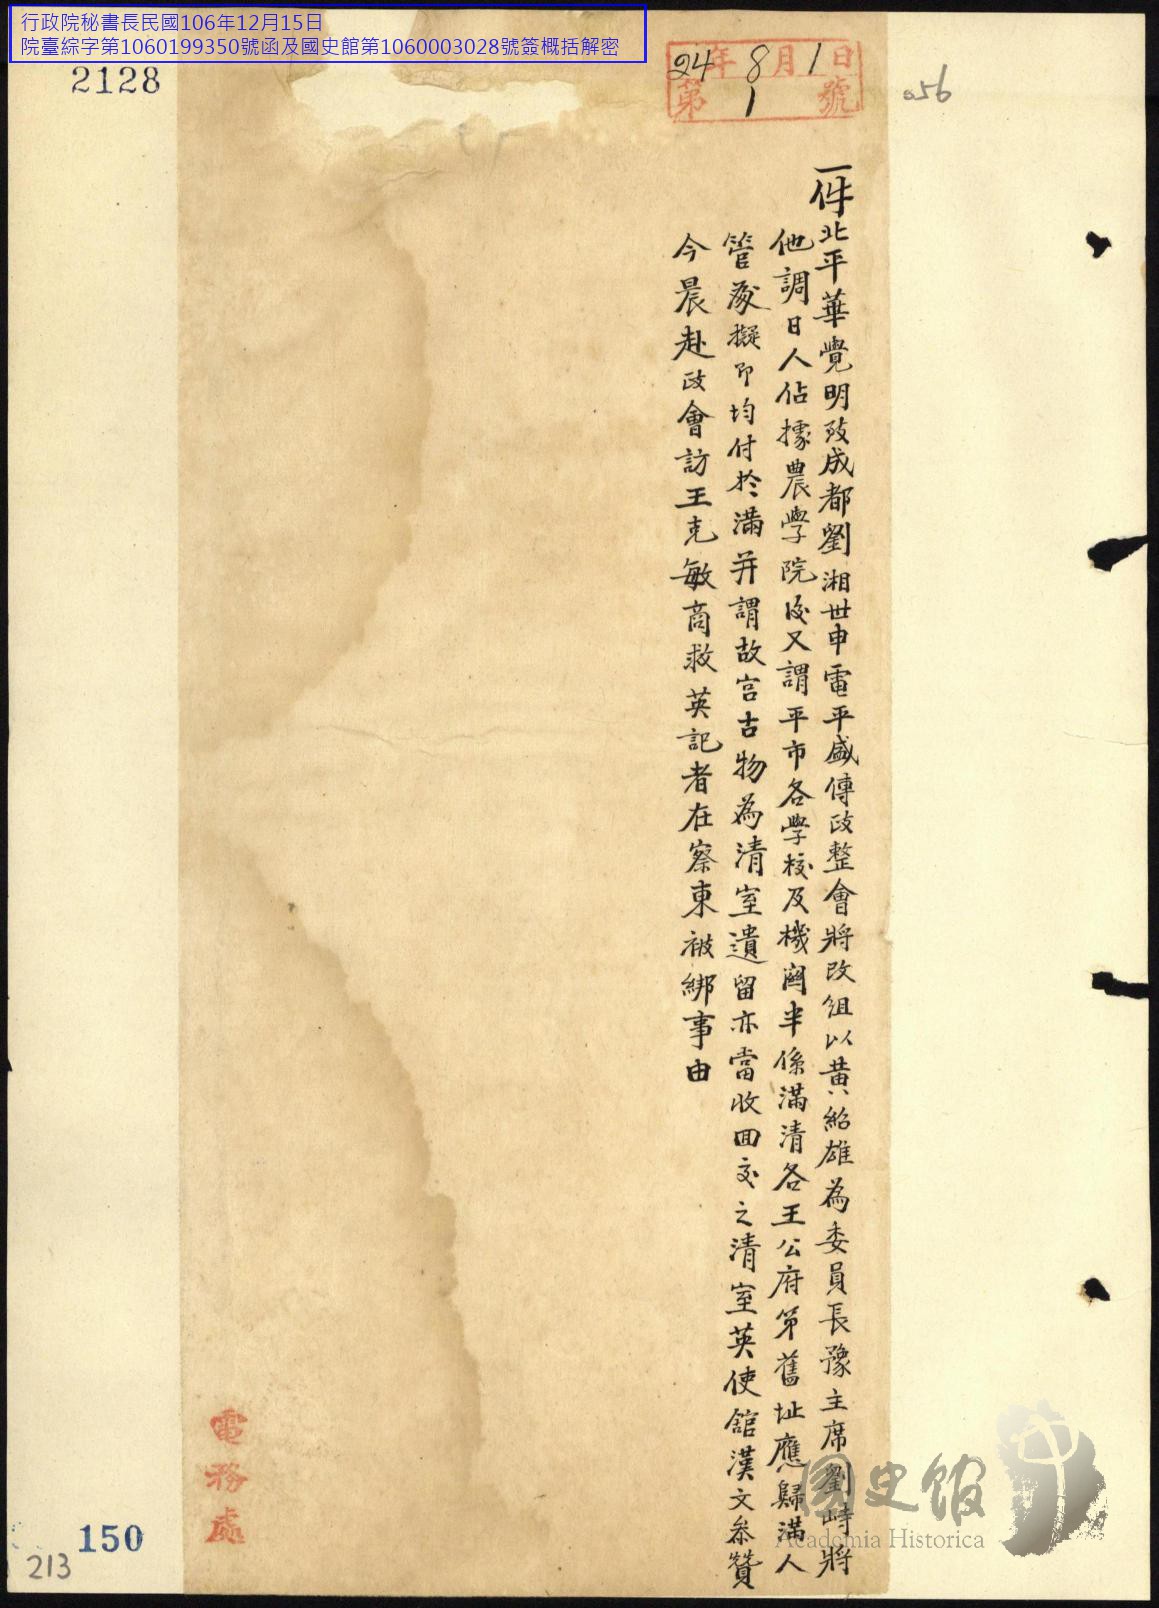 行政院秘書長民國106年12月15日
院臺綜字第1060199350號函及國史館第1060003028號簽概括解密
2128
24年8月1日
第1號
056
一件北平華覺明致成都劉湘世申電平盛傳政整會將改組以黃紹雄為委員長豫主席劉峙將
他調日人佔據農學院後又謂平市各學校及機關半係滿清各王公府第舊址應歸滿人
管家擬即均付於滿并謂故宮古物為清室遺留亦當收回交之清室英使館漢文參贊
今晨赴政會訪王克敏商救英記者在察東被綁事由
電務處
150
213
國史館
Academia Historica